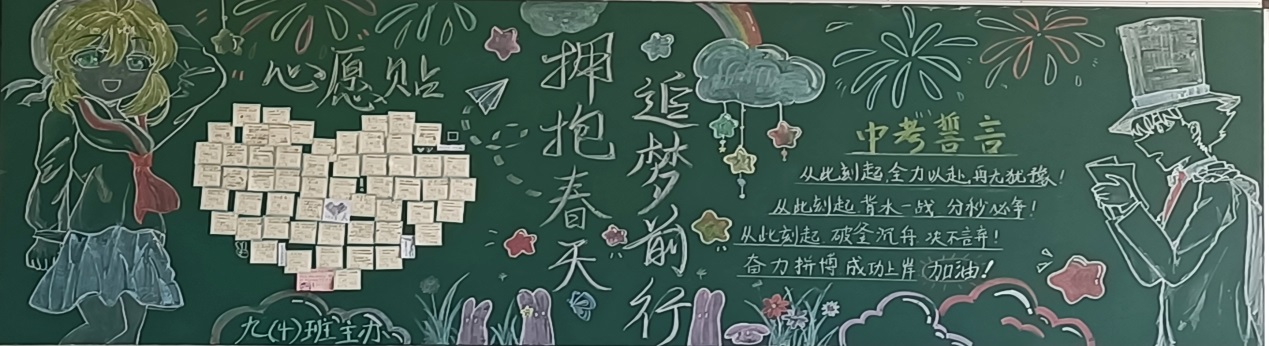 心愿贴
押抱春天
追梦前行
中考誓言
从此刻起,全力以赴,再无犹豫!
从此刻起 背水一战 分秒必争!
从此刻起 破釜沉舟 决不言弃!
奋力拼博 成功上岸 加油!
九(4)班主办